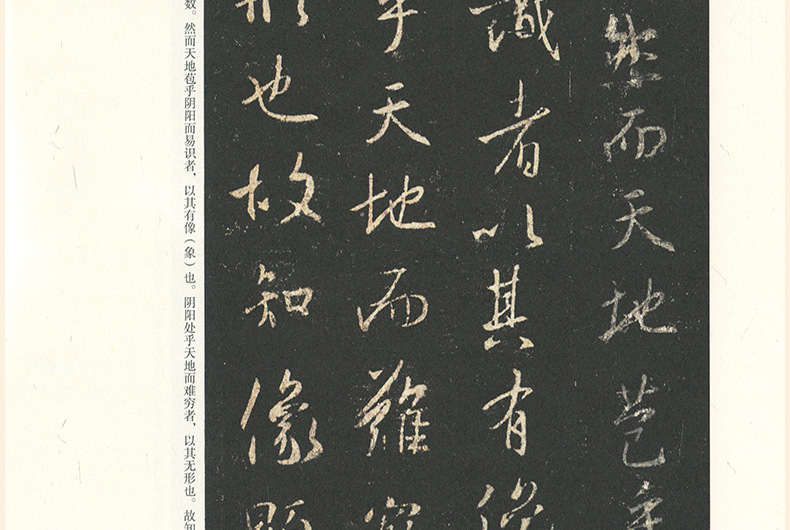 然而天地苞乎
識者以其有像
乎天地而難窮
形也故知像顯
数。然而天地苞乎阴阳而易识者，以其有像（象）也。阴阳处乎天地而难穷者，以其无形也。故知